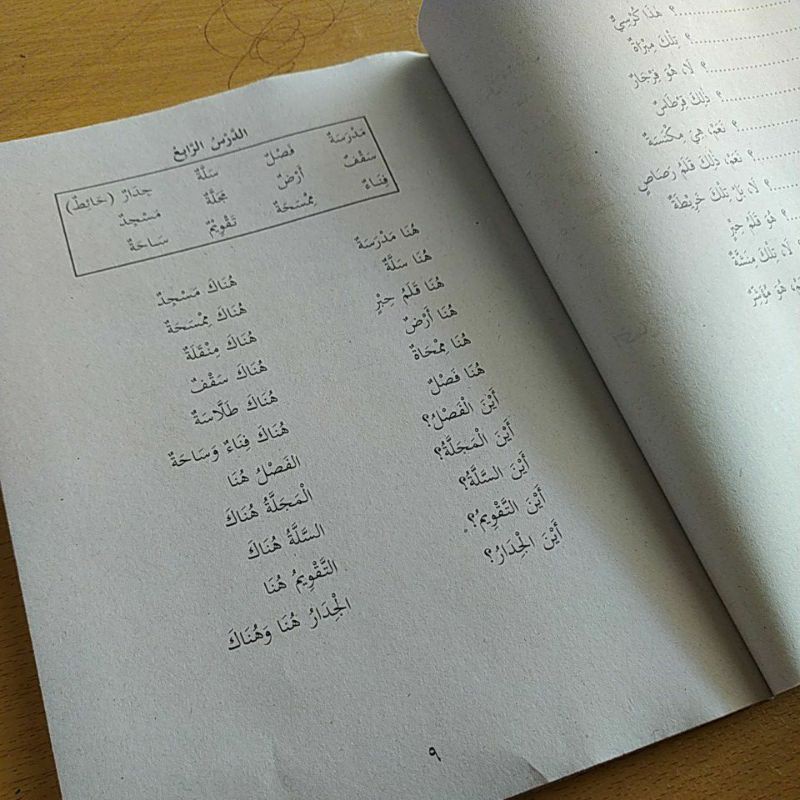 الدَّرْسُ الرَّابِعُ
مَدْرَسَةٌ فَصْلٌ سَلَّةٌ جِدَارٌ (حَائِطٌ)
سَقْفٌ أَرْضٌ مَجَلَّةٌ مَسْجِدٌ
فِنَاءٌ مِمْسَحَةٌ تَقْوِيْمٌ سَاحَةٌ
هُنَا مَدْرَسَةٌ هُنَاكَ مَسْجِدٌ
هُنَا سَلَّةٌ هُنَاكَ مِمْسَحَةٌ
هُنَا قَلَمُ حِبْرٍ هُنَاكَ مِنْقَلَةٌ
هُنَا أَرْضٌ هُنَاكَ سَقْفٌ
هُنَا مِمْحَاةٌ هُنَاكَ طَلَّاسَةٌ
هُنَا فَصْلٌ هُنَاكَ فِنَاءٌ وَسَاحَةٌ
أَيْنَ الْفَصْلُ؟ الفَصْلُ هُنَا
أَيْنَ الْمَجَلَّةُ؟ الْمَجَلَّةُ هُنَاكَ
أَيْنَ السَّلَّةُ؟ السَّلَّةُ هُنَاكَ
أَيْنَ التَّقْوِيمُ؟ التَّقْوِيمُ هُنَا
أَيْنَ الْجِدَارُ؟ الْجِدَارُ هُنَا وَهُنَاكَ
٩
؟ هَذَا كُرْسِيٌّ
؟ تِلْكَ مِبْرَاةٌ
؟ لَا، هُوَ فِرْجَارٌ
؟ ذَلِكَ قِرْطَاسٌ
؟ نَعَمْ، هِيَ مِكْنَسَةٌ
؟ نَعَمْ، ذَلِكَ قَلَمُ رَصَاصٍ
؟ لَا، بَلْ تِلْكَ خَرِيْطَةٌ
؟ هُوَ قَلَمُ حِبْرٍ
لَا، تِلْكَ مِنَشَّةٌ
هُوَ مُؤَشِّرٌ